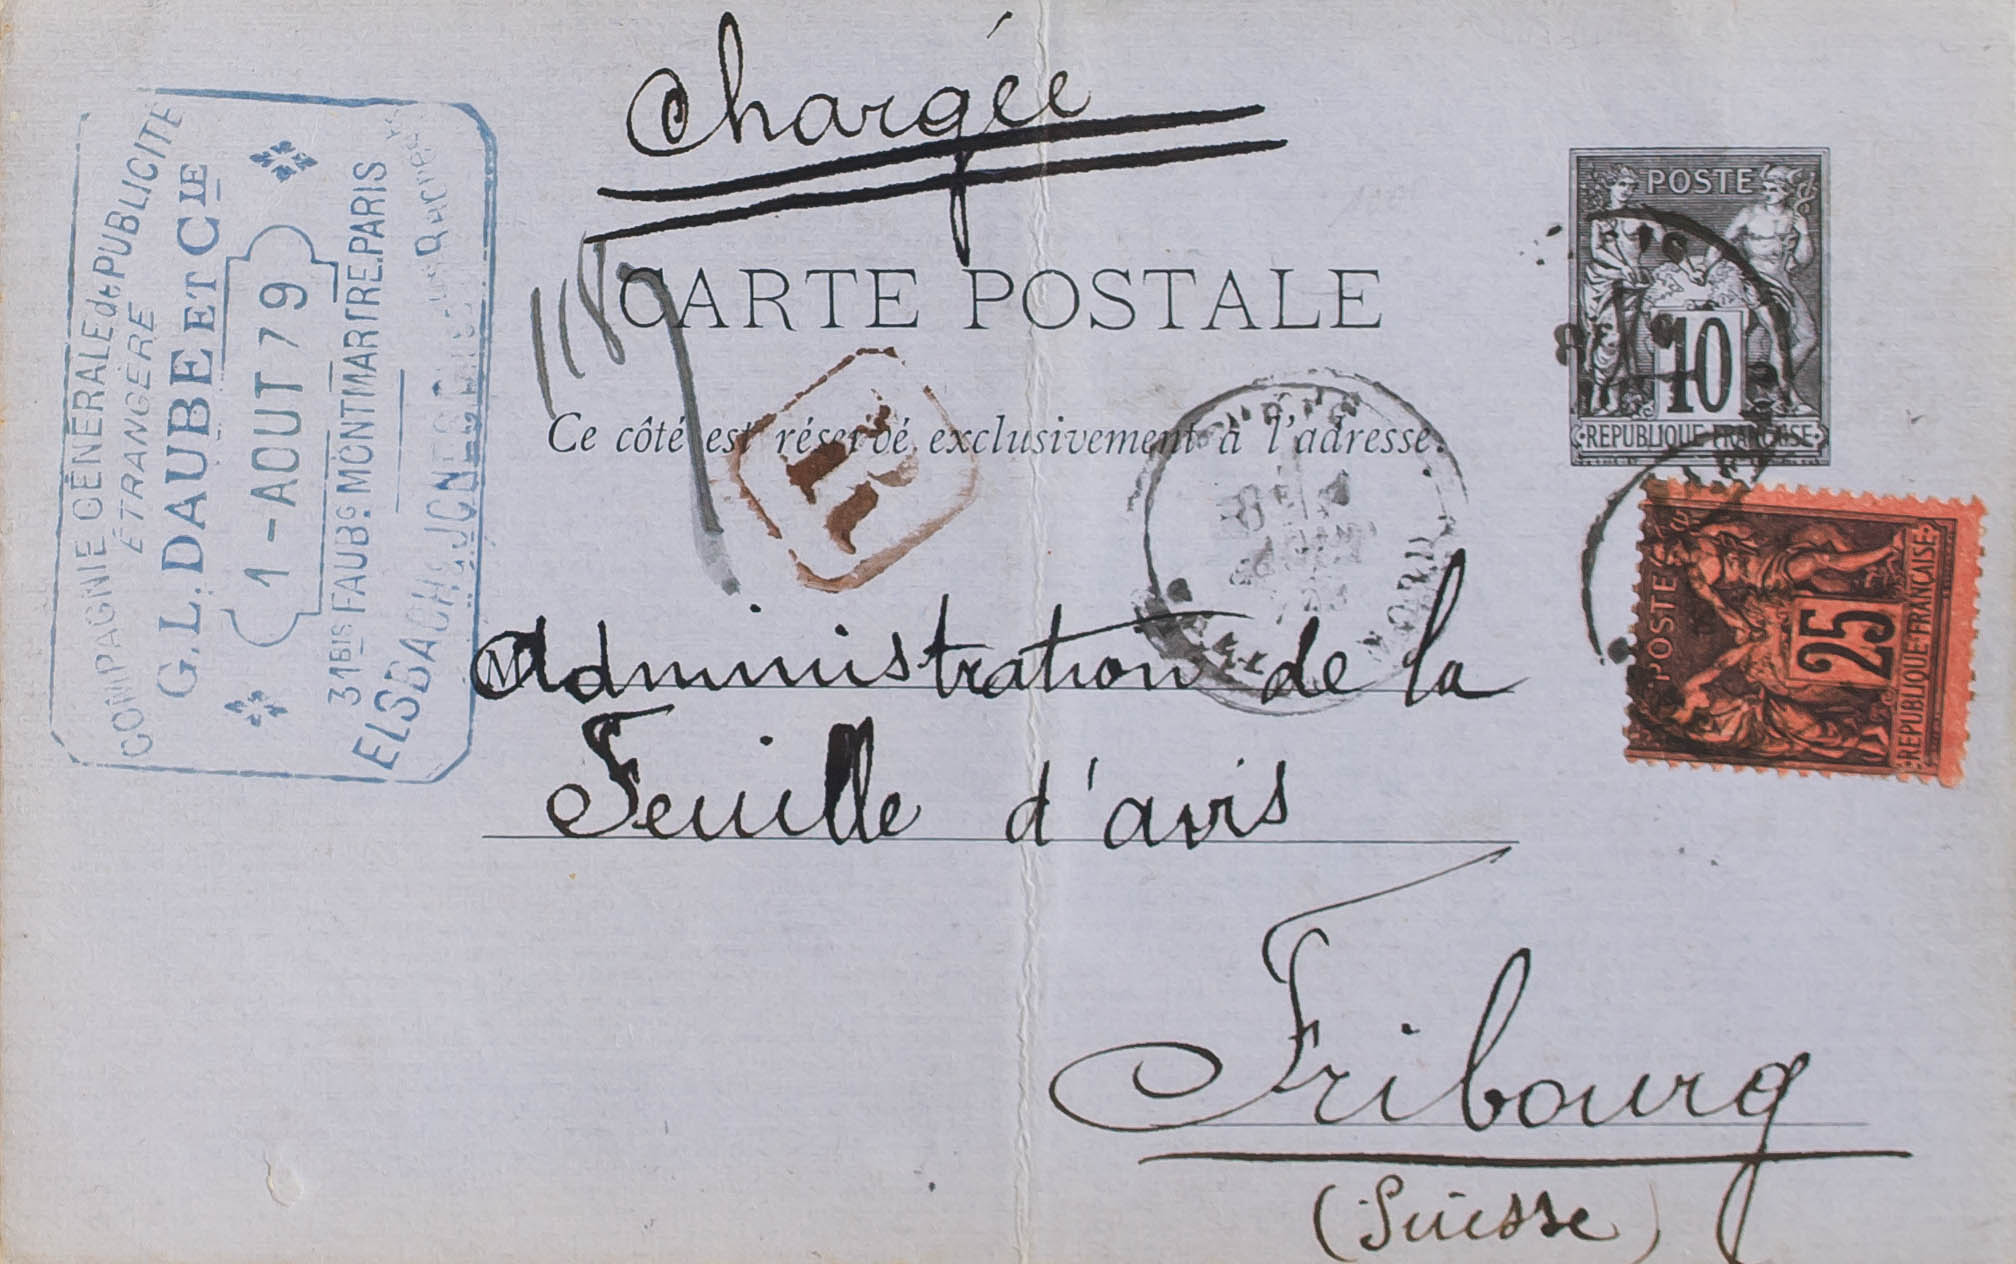 Chargée
COMPAGNIE GÉNÉRALE de PUBLICITÉ
ÉTRANGÈRE
G.L. DAUBE ET CIE
1 - AOUT 79
31BIS FAUBG MONTMARTRE. PARIS
1189
CARTE POSTALE
Ce côté est réservé exclusivement à l'adresse.
R
POSTE
10
REPUBLIQUE FRANÇAISE
POSTE
25
REPUBLIQUE FRANÇAISE
M Administration de la
Feuille d'avis
Fribourg
(Suisse)